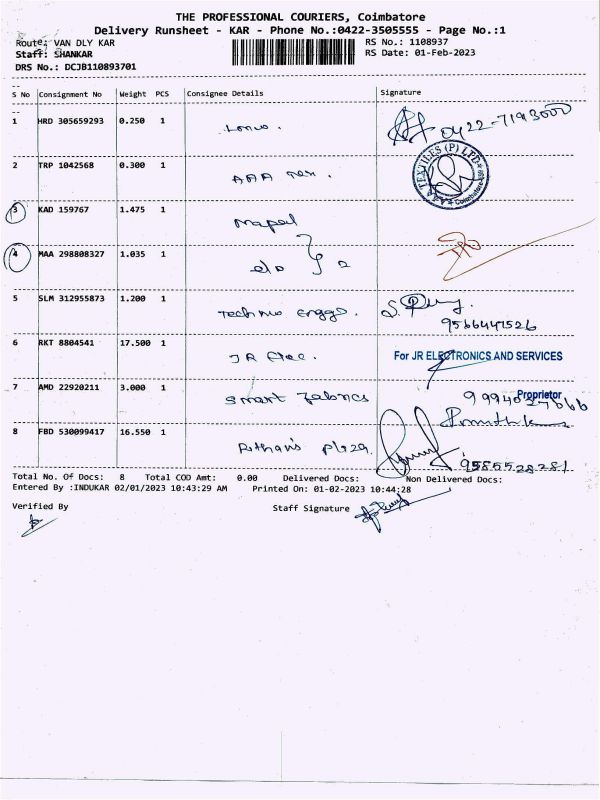 THE PROFESSIONAL COURIERS, Coimbatore
Delivery Runsheet - KAR - Phone No.:0422-3505555 - Page No.:1
Route: VAN DLY KAR RS No.: 1108937
Staff: SHANKAR RS Date: 01-Feb-2023
DRS No.: DCJB110893701
S No Consignment No Weight PCS Consignee Details Signature
1 HRD 305659293 0.250 1 0422-7193000
2 TRP 1042568 0.300 1 AAA Tex. TEXTILES (P) LTD Coimbatore
3 KAD 159767 1.475 1
4 MAA 298808327 1.035 1
5 SLM 312955873 1.200 1 Techno Enggs. 9566447526
6 RKT 8804541 17.500 1 JR Elec. For JR ELECTRONICS AND SERVICES
7 AMD 22920211 3.000 1 Smart Fabrics Proprietor
8 FBD 530099417 16.550 1 Plaza 9585528281
Total No. Of Docs: 8 Total COD Amt: 0.00 Delivered Docs: Non Delivered Docs:
Entered By :INDUKAR 02/01/2023 10:43:29 AM Printed On: 01-02-2023 10:44:28
Verified By Staff Signature